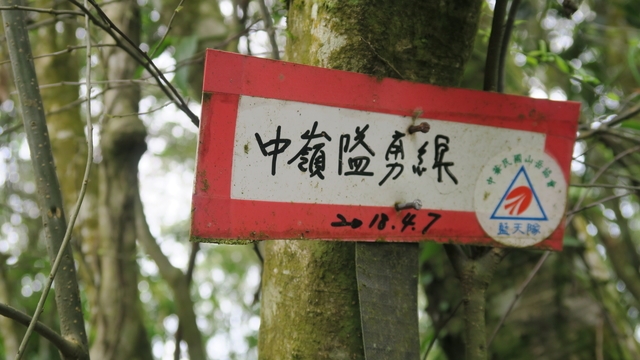 中嶺隘勇線
2018.4.7
中華民國山岳協會
藍天隊